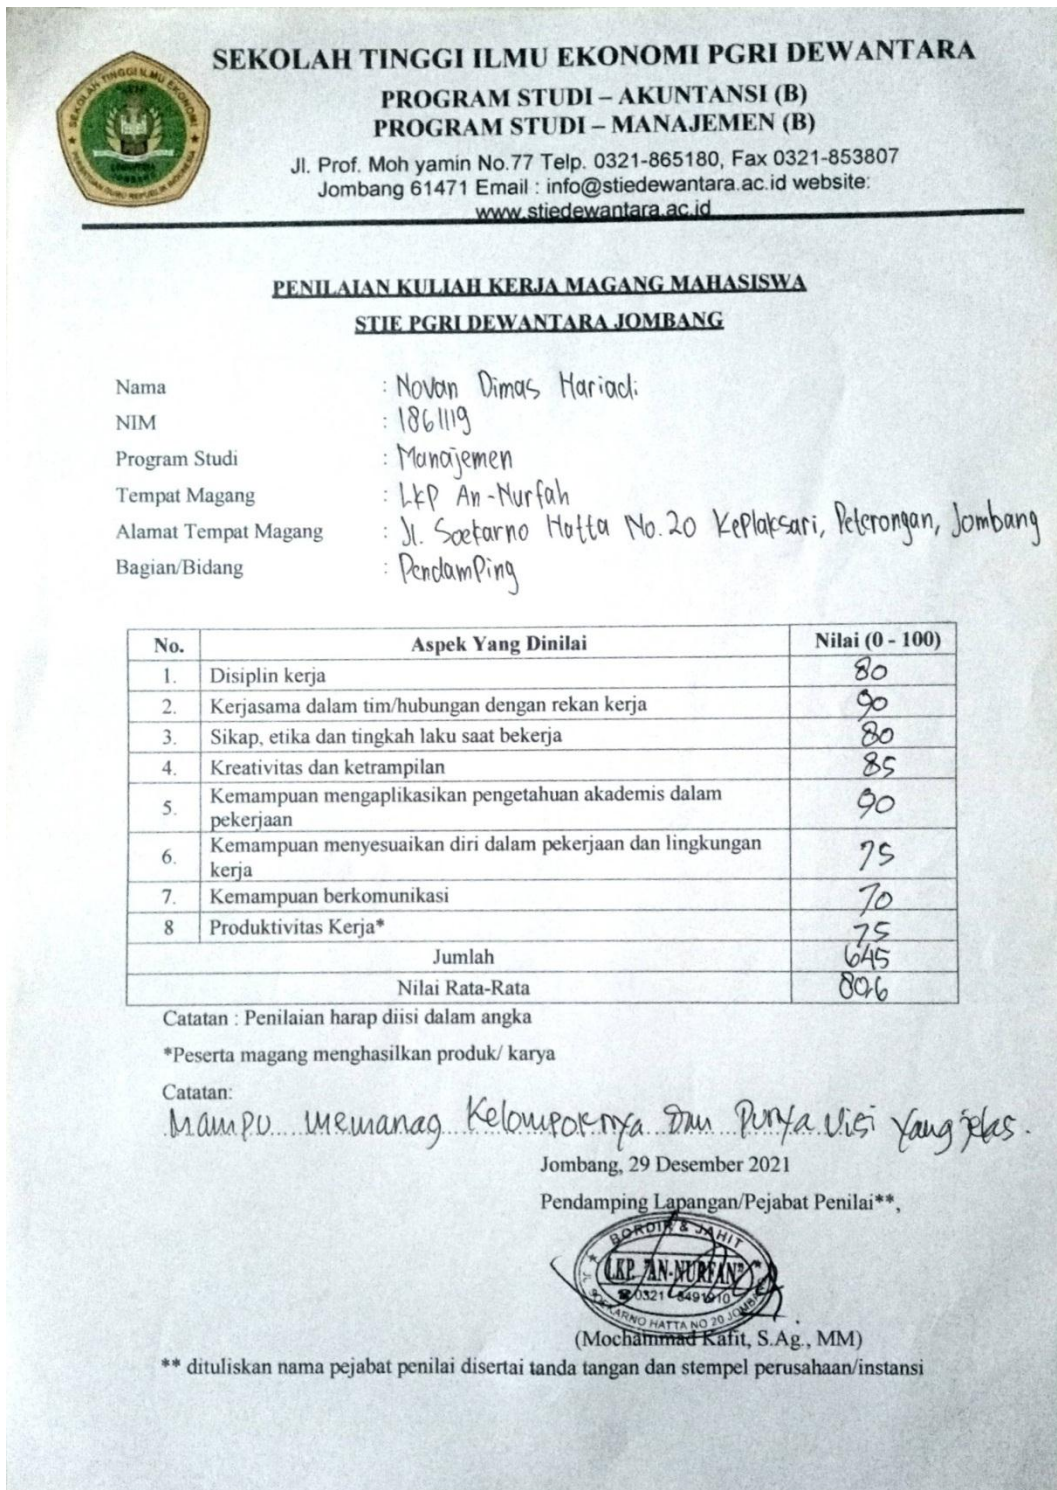 SEKOLAH TINGGI ILMU EKONOMI PGRI DEWANTARA
PROGRAM STUDI – AKUNTANSI (B)
PROGRAM STUDI – MANAJEMEN (B)
Jl. Prof. Moh yamin No.77 Telp. 0321-865180, Fax 0321-853807
Jombang 61471 Email : info@stiedewantara.ac.id website:
www.stiedewantara.ac.id
SEKOLAH TINGGI ILMU EKONOMI
JOMBANG
PENILAIAN KULIAH KERJA MAGANG MAHASISWA
STIE PGRI DEWANTARA JOMBANG
Nama : Novan Dimas Hariadi
NIM : 1861119
Program Studi : Manajemen
Tempat Magang : LKP An-Nurfah
Alamat Tempat Magang : Jl. Soekarno Hatta No.20 Keplaksari, Peterongan, Jombang
Bagian/Bidang : Pendamping
No. Aspek Yang Dinilai Nilai (0 - 100)
1. Disiplin kerja 80
2. Kerjasama dalam tim/hubungan dengan rekan kerja 90
3. Sikap, etika dan tingkah laku saat bekerja 80
4. Kreativitas dan ketrampilan 85
5. Kemampuan mengaplikasikan pengetahuan akademis dalam pekerjaan 90
6. Kemampuan menyesuaikan diri dalam pekerjaan dan lingkungan kerja 75
7. Kemampuan berkomunikasi 70
8 Produktivitas Kerja* 75
Jumlah 645
Nilai Rata-Rata 80,6
Catatan : Penilaian harap diisi dalam angka
*Peserta magang menghasilkan produk/ karya
Catatan:
Mampu memanag Kelompoknya dan Punya Visi Yang jelas.
Jombang, 29 Desember 2021
Pendamping Lapangan/Pejabat Penilai**,
BORDIR & JAHIT
LKP. "AN-NURFAN"
JL. SOEKARNO HATTA NO 20 JOMBANG
(Mochammad Kafit, S.Ag., MM)
** dituliskan nama pejabat penilai disertai tanda tangan dan stempel perusahaan/instansi